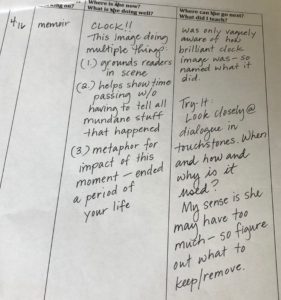 ing on?
Where is she
What is she doing well?
Where can she go next?
What did I teach?
4/12
memoir
CLOCK!!
This image doing
multiple things.
(1.) grounds readers
in scene
(2.) helps show time
passing w/o
having to tell all
mundane stuff
that happened
(3.) metaphor for
impact of this
moment - ended
a period of
your life
was only vaguely
aware of how
brilliant clock
image was - so
named what it
did.
Try It:
Look closely @
dialogue in
touchstones. When
and how and
why is it
used?
My sense is she
may have too
much - so figure
out what to
keep/remove.